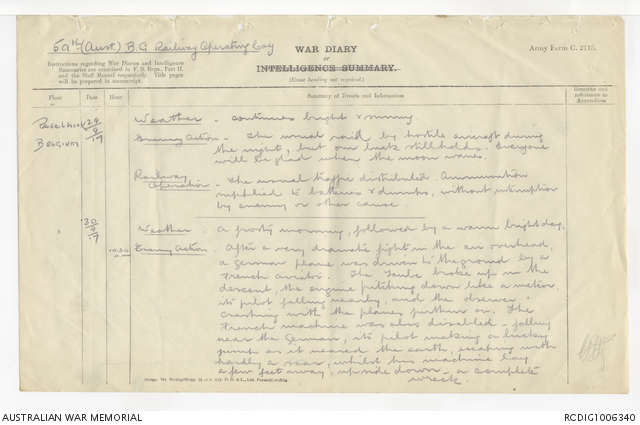 59th (Aust) B.G Railway Operating Coy
WAR DIARY
or
INTELLIGENCE SUMMARY.
(Erase heading not required.)
Army Form C. 2118.
Instructions regarding War Diaries and Intelligence
Summaries are contained in F. S. Regs., Part II.
and the Staff Manual respectively. Title pages
will be prepared in manuscript.
Place Date Hour Summary of Events and Information Remarks and
references to
Appendices
Belgium 29/9/17 Weather - continues bright & sunny.
Enemy Action - The usual raid by hostile aircraft during
the night, but our luck still holds. Everyone
will be glad when the moon wanes.
Railway
Operation - The usual traffic distributed. Ammunition
supplied to batteries & dumps, without interruption
by enemy or other cause.
30/9/17 Weather - A frosty morning, followed by a warm bright day.
10.30 Enemy Action - After a very dramatic fight in the air overhead,
a German plane was driven to the ground by a
French aviator. The Taube broke up in the
descent, the engine pitching down like a meteor,
its pilot falling nearby, and the observer
crashing with the planes further on. The
French machine was also disabled - falling
near the German, its pilot making a lucky
jump as it neared the earth, escaping with
hardly a scar, whilst his machine lay
a few feet away, upside down - a complete
wreck.
AUSTRALIAN WAR MEMORIAL
RCDIG1006340